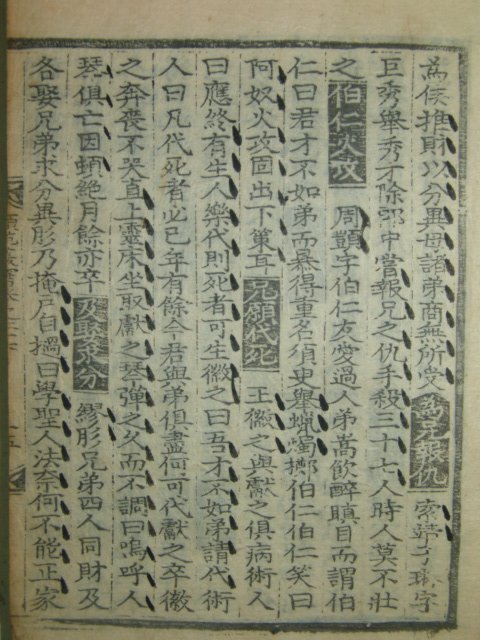 為侯推財以分異母諸弟商無所受爲兄報仇索靖子琳字
巨秀舉秀才除郎中嘗報兄之仇手殺三十七人時人莫不壯
之伯仁火攻周顗字伯仁友愛過人弟嵩飮醉瞋目而謂伯
仁曰君才不如弟而暴得重名須臾舉蠟燭擲伯仁伯仁笑曰
阿奴火攻固出下策耳兄願代死王徽之與獻之俱病術人
曰應終有生人樂代則死者可生徽之曰吾才不如弟請代術
人曰凡代死者必已年有餘今君與弟俱盡何可代獻之卒徽
之奔喪不哭直上靈床坐取獻之琴彈之久而不調曰嗚呼人
琴俱亡因頓絶月餘亦卒及娶求分繆肜兄弟四人同財及
各娶兄弟求分異肜乃掩戶自撾曰學聖人法奈何不能正家